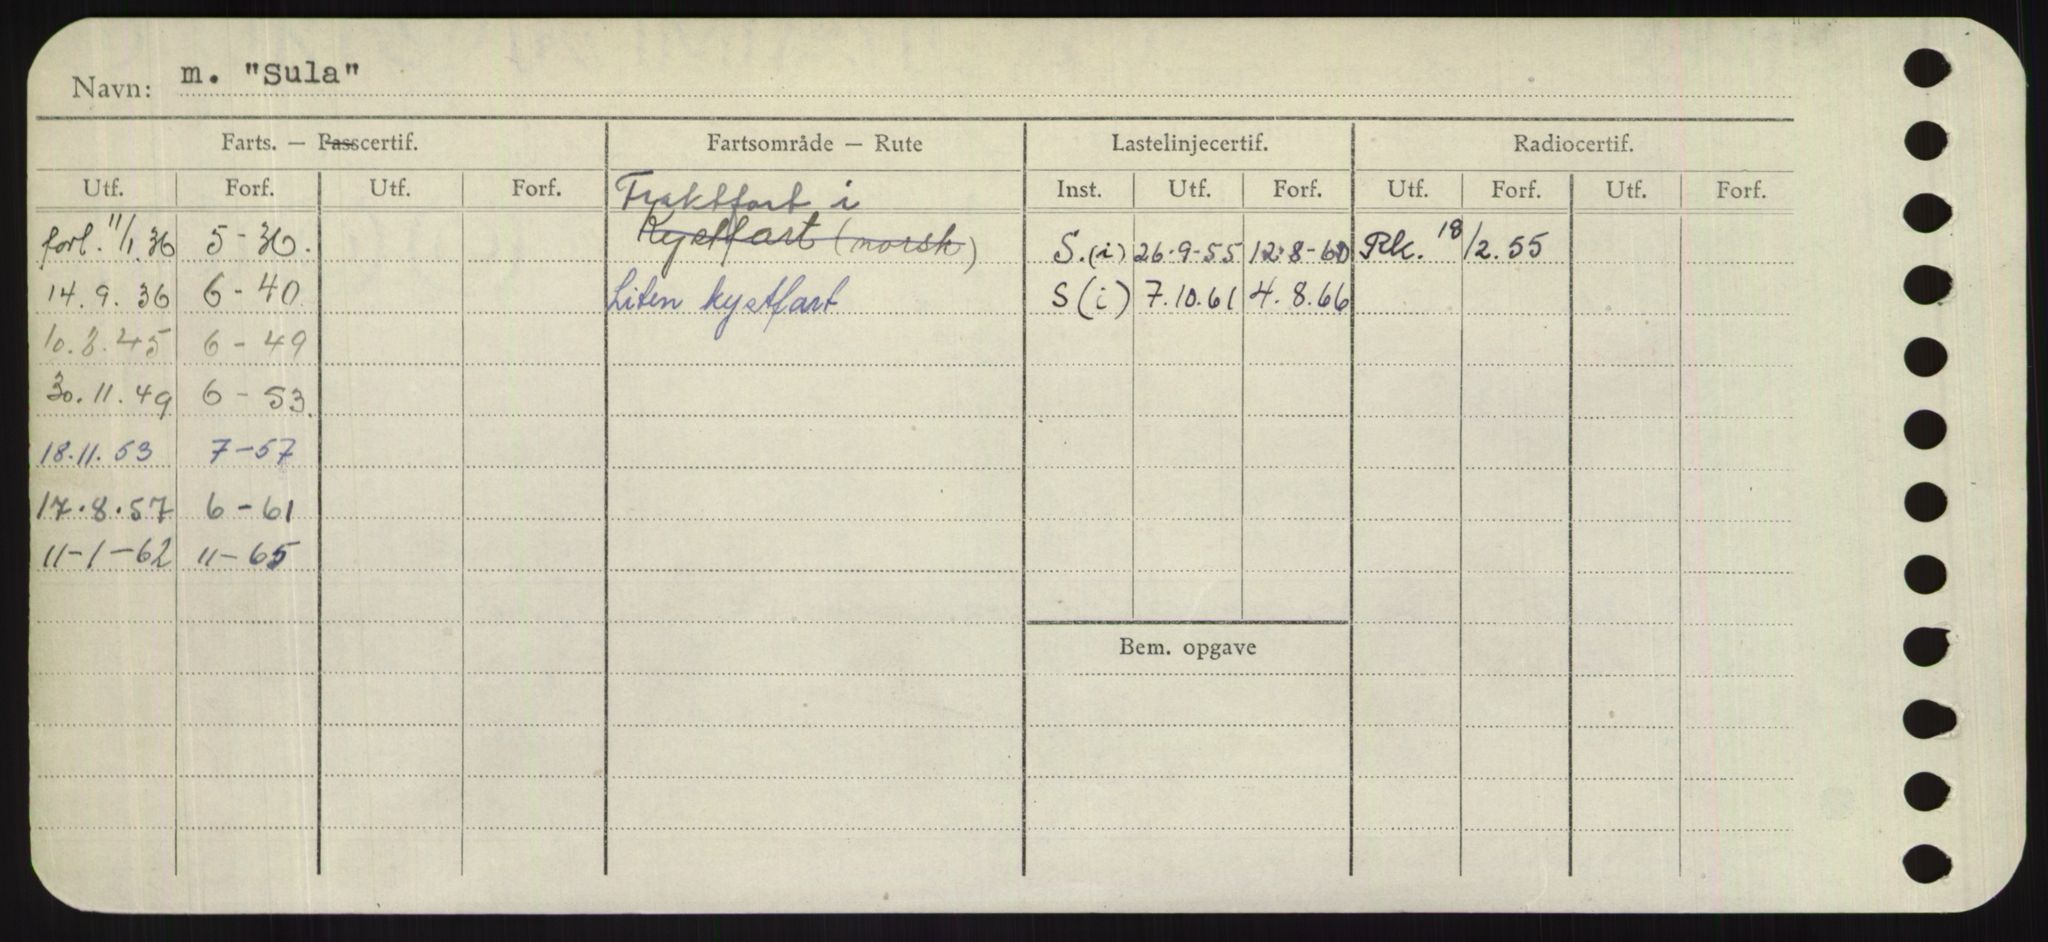 Navn: m. "Sula"
Farts. — Passcertif. Fartsområde — Rute Lastelinjecertif. Radiocertif.
Utf. Forf. Utf. Forf. Fraktfart i Inst. Utf. Forf. Utf. Forf. Utf. Forf.
forl. 11/1 36 5-36. Kystfart (norsk) S.(i) 26.9-55 12.8-60 Rk. 18/2.55
14.9.36 6-40 Liten kystfart S(i) 7.10.61 4.8.66
10.8.45 6-49
30.11.49 6-53.
18.11.53 7-57
17.8.57 6-61
11-1-62 11-65
Bem. opgave